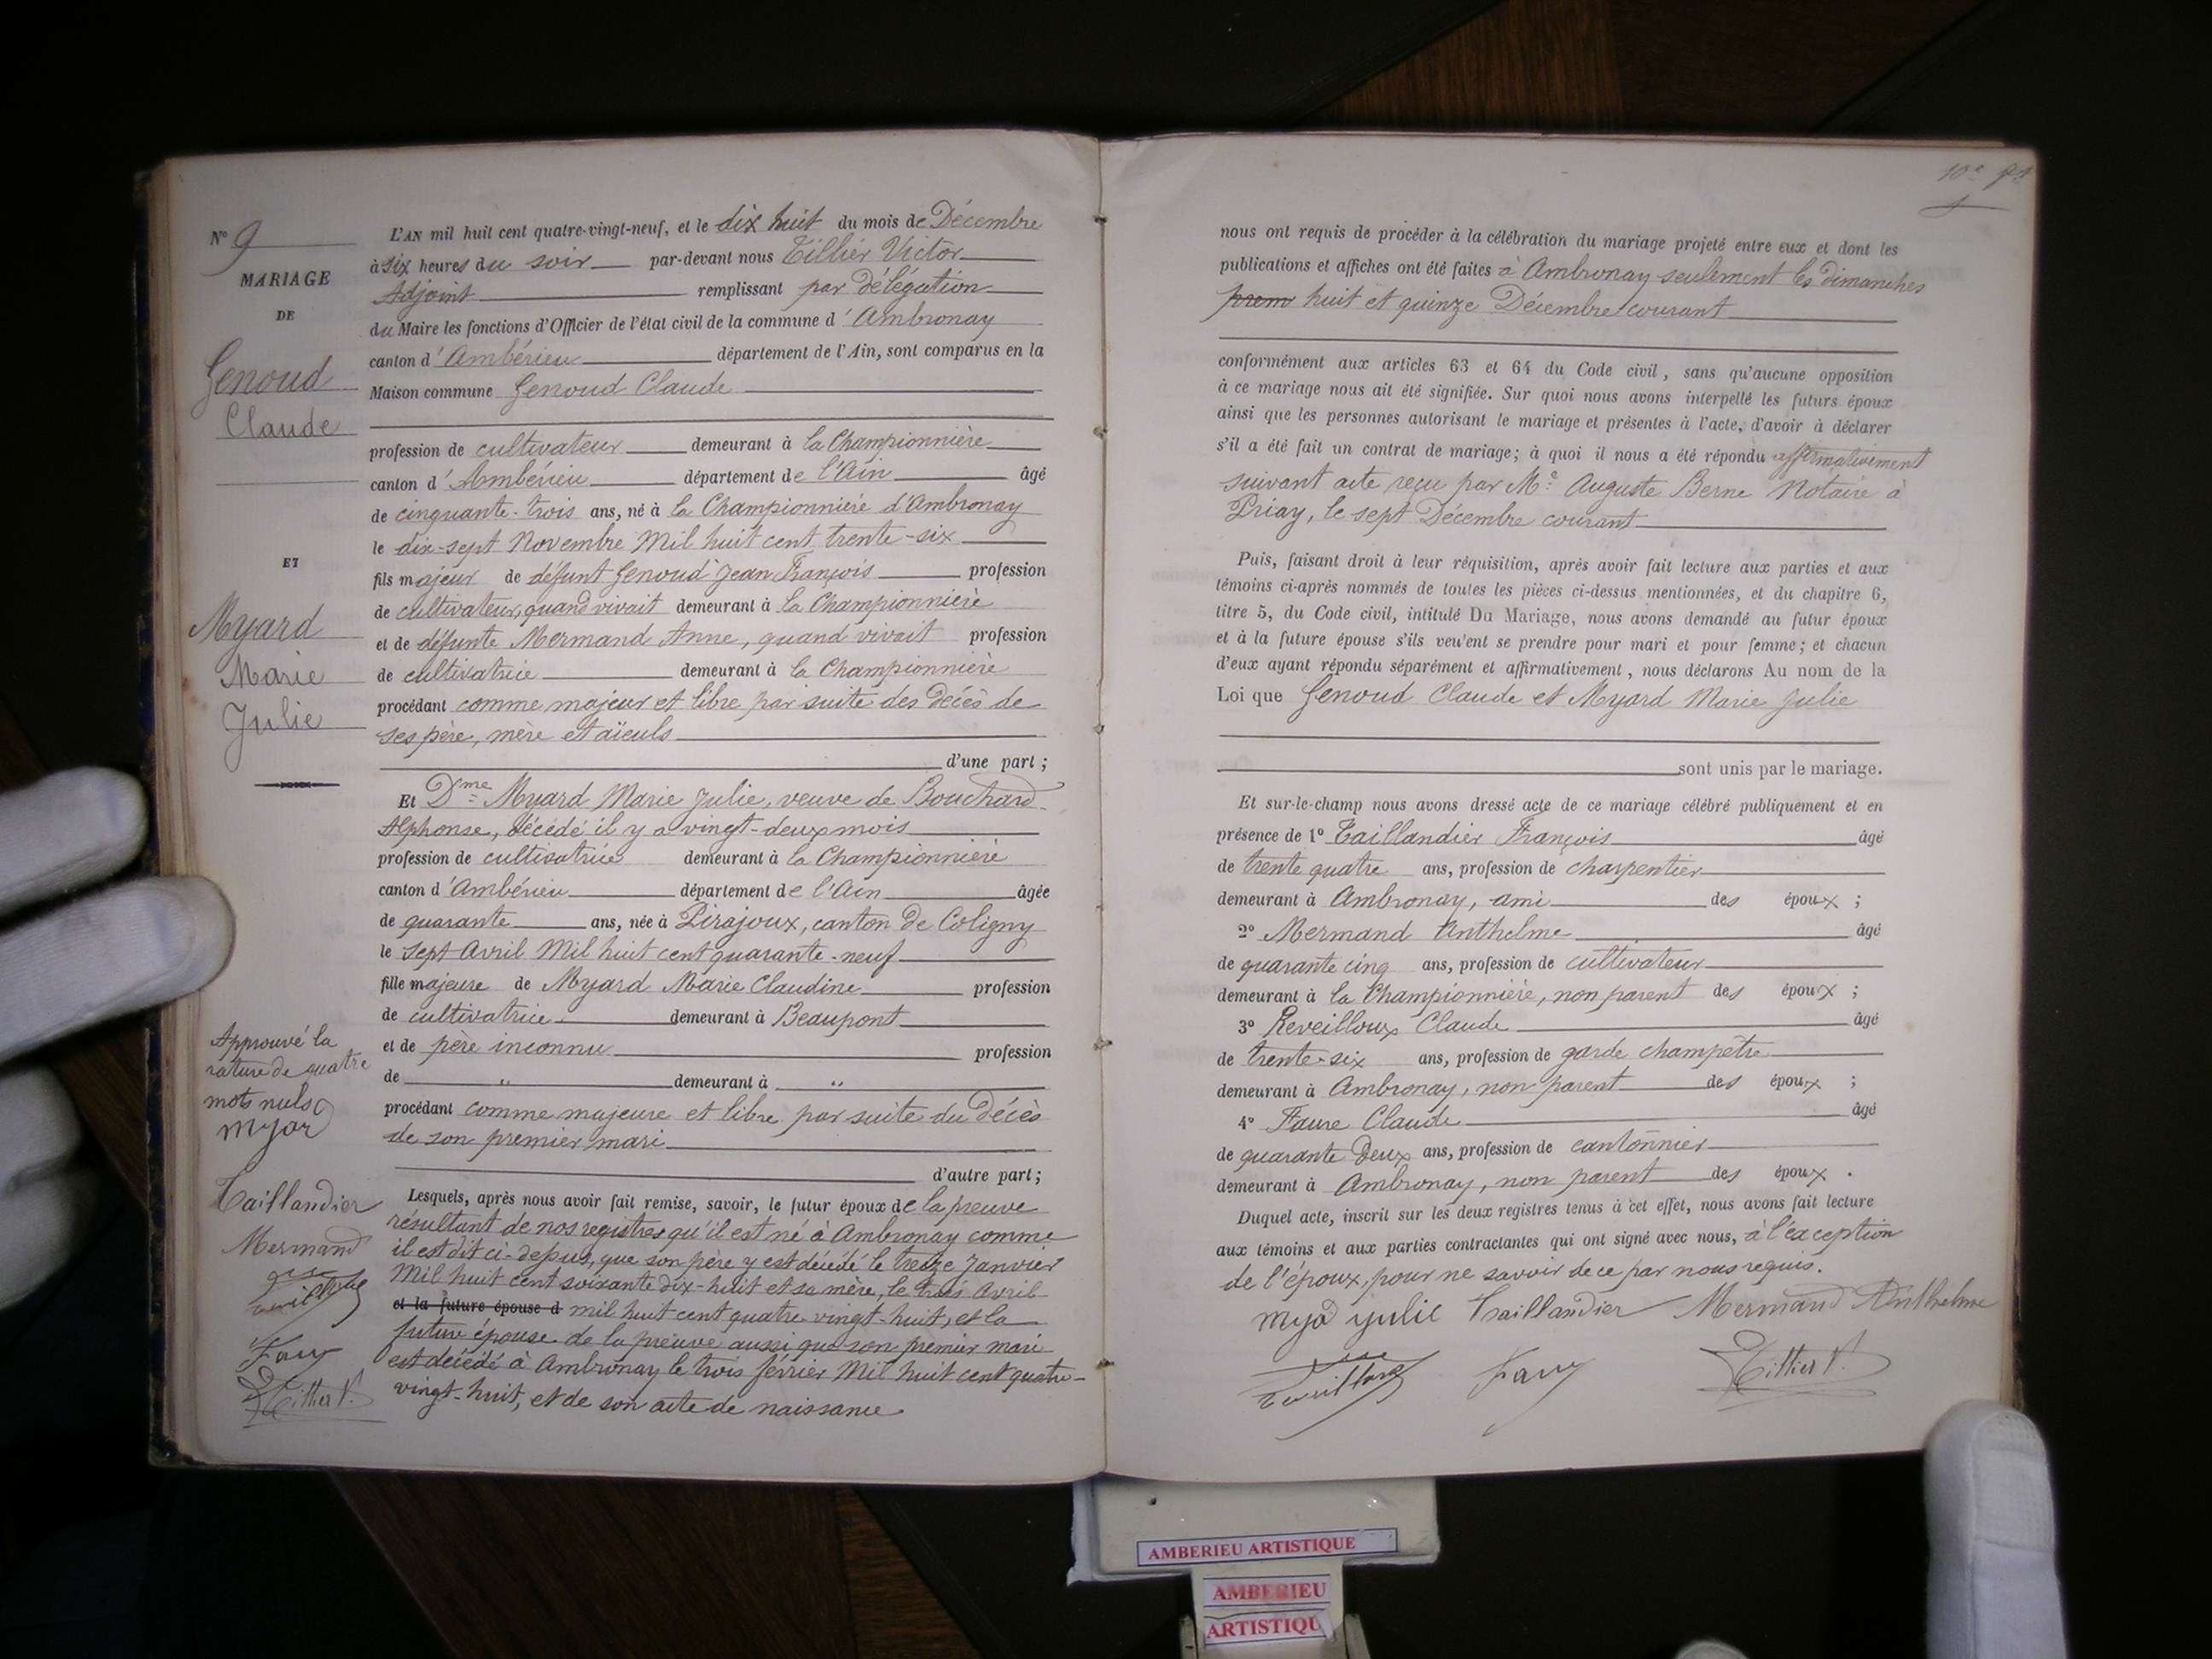 N° 9
MARIAGE
DE
Genoud
Claude
ET
Myard
Marie
Julie
Approuvé la
rature de quatre
mots nuls
myar
Taillandier
Mermand
Tillier V.
L'AN mil huit cent quatre-vingt-neuf, et le dix huit du mois de Décembre
à six heures du soir par-devant nous Tillier Victor
Adjoint remplissant par délégation
du Maire les fonctions d'Officier de l'état civil de la commune d'Ambronay
canton d'Ambérieu département de l'Ain, sont comparus en la
Maison commune Genoud Claude
profession de cultivateur demeurant à la Championnière
canton d'Ambérieu département de l'Ain âgé
de cinquante-trois ans, né à la Championnière d'Ambronay
le dix-sept Novembre Mil huit cent trente-six
fils majeur de défunt Genoud Jean François profession
de cultivateur, quand vivait demeurant à la Championnière
et de défunte Mermand Anne, quand vivait profession
de cultivatrice demeurant à la Championnière
procédant comme majeur et libre par suite des décès de
ses père, mère et aïeuls
d'une part ;
Et Dme Myard Marie Julie, veuve de Bouchard
Alphonse, décédé il y a vingt-deux mois
profession de cultivatrice demeurant à la Championnière
canton d'Ambérieu département de l'Ain âgée
de quarante ans, née à Pirajoux, canton de Coligny
le sept Avril Mil huit cent quarante-neuf
fille majeure de Myard Marie Claudine profession
de cultivatrice demeurant à Beaupont
et de père inconnu profession
de " demeurant à "
procédant comme majeure et libre par suite du décès
de son premier mari
d'autre part ;
Lesquels, après nous avoir fait remise, savoir, le futur époux de la preuve
résultant de nos registres qu'il est né à Ambronay comme
il est dit ci-depus, que son père y est décédé le treize Janvier
Mil huit cent soixante dix-huit et sa mère, le trois Avril
et la future épouse d mil huit cent quatre vingt-huit, et la
future épouse de la preuve aussi que son premier mari
est décédé à Ambronay le trois février Mil huit cent quatre-
vingt-huit, et de son acte de naissance
nous ont requis de procéder à la célébration du mariage projeté entre eux et dont les
publications et affiches ont été faites à Ambronay seulement les dimanches
prem huit et quinze Décembre courant
conformément aux articles 63 et 64 du Code civil, sans qu'aucune opposition
à ce mariage nous ait été signifiée. Sur quoi nous avons interpellé les futurs époux
ainsi que les personnes autorisant le mariage et présentes à l'acte, d'avoir à déclarer
s'il a été fait un contrat de mariage ; à quoi il nous a été répondu affirmativement
suivant acte reçu par Me Auguste Berne Notaire à
Priay, le sept Décembre courant
Puis, faisant droit à leur réquisition, après avoir fait lecture aux parties et aux
témoins ci-après nommés de toutes les pièces ci-dessus mentionnées, et du chapitre 6,
titre 5, du Code civil, intitulé Du Mariage, nous avons demandé au futur époux
et à la future épouse s'ils veu'ent se prendre pour mari et pour femme ; et chacun
d'eux ayant répondu séparément et affirmativement, nous déclarons Au nom de la
Loi que Genoud Claude et Myard Marie Julie
sont unis par le mariage.
Et sur-le-champ nous avons dressé acte de ce mariage célébré publiquement et en
présence de 1° Taillandier François âgé
de trente quatre ans, profession de charpentier
demeurant à Ambronay, ami des époux ;
2° Mermand Anthelme âgé
de quarante cinq ans, profession de cultivateur
demeurant à la Championnière, non parent des époux ;
3° Reveilloux Claude âgé
de trente-six ans, profession de garde champêtre
demeurant à Ambronay, non parent des époux ;
4° Faure Claude âgé
de quarante deux ans, profession de cantonnier
demeurant à Ambronay, non parent des époux .
Duquel acte, inscrit sur les deux registres tenus à cet effet, nous avons fait lecture
aux témoins et aux parties contractantes qui ont signé avec nous, à l'exception
de l'époux, pour ne savoir de ce par nous requis.
myad yulie Taillandier Mermand Anthelme
Tillier V.
AMBERIEU ARTISTIQUE
AMBERIEU
ARTISTIQU